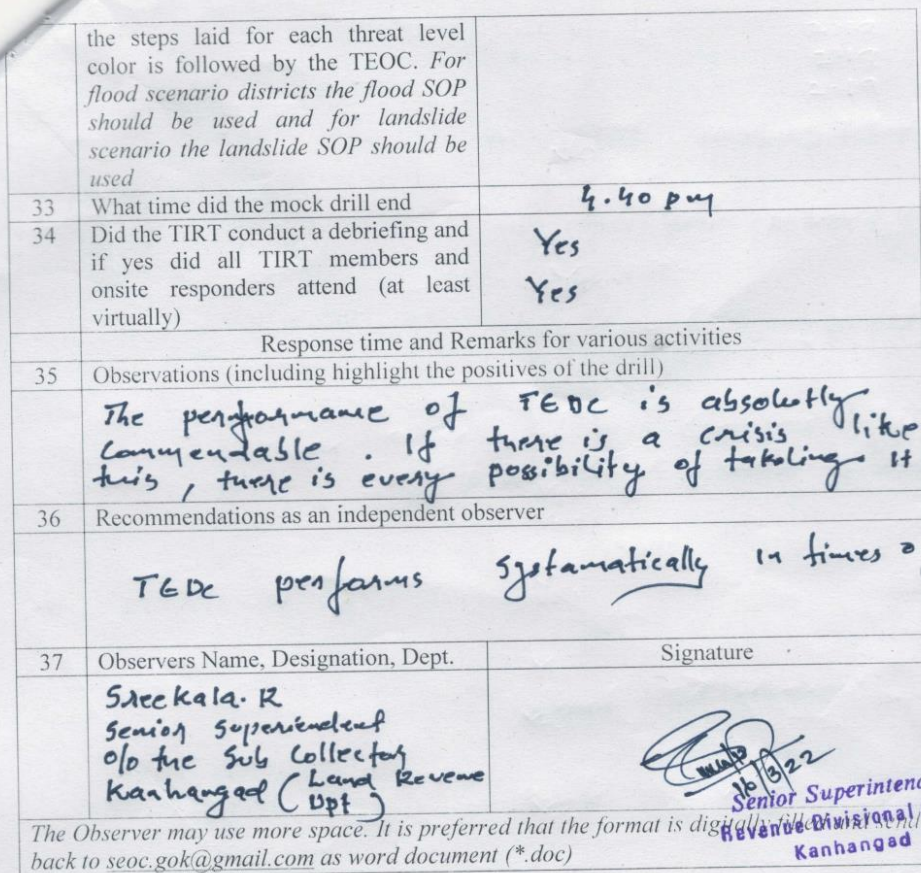 the steps laid for each threat level
color is followed by the TEOC. For
flood scenario districts the flood SOP
should be used and for landslide
scenario the landslide SOP should be
used
33 What time did the mock drill end 4.40 pm
34 Did the TIRT conduct a debriefing and
if yes did all TIRT members and
onsite responders attend (at least
virtually)
Yes
Yes
Response time and Remarks for various activities
35 Observations (including highlight the positives of the drill)
The performance of TEOC is absolutly
Commendable. If there is a crisis like
this, there is every possibility of takeling it
36 Recommendations as an independent observer
TEOC performs systamatically in times
37 Observers Name, Designation, Dept. Signature
Sreekala. R
Senior
o/o the Sub Collector
Kanhangad (Land Revenue
Dpt)
16/3/22
Senior Superintend
Revenue Divisional
Kanhangad
The Observer may use more space. It is preferred that the format is digitally filled and send
back to seoc.gok@gmail.com as word document (*.doc)